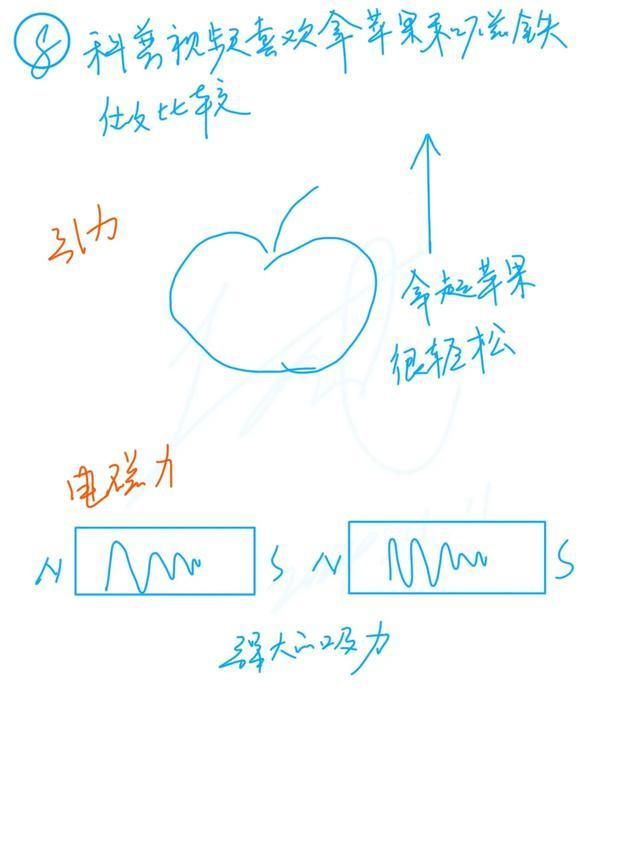 ⑧ 科普视频喜欢拿苹果和磁铁
做比较
引力
拿起苹果
很轻松
电磁力
N S N S
强大的吸力